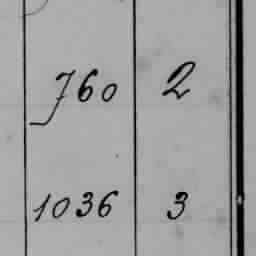 760 2
1036 3